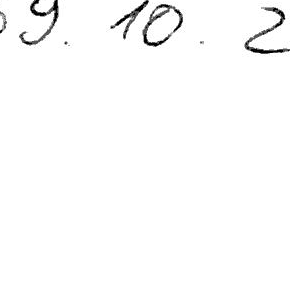 09. 10. 2